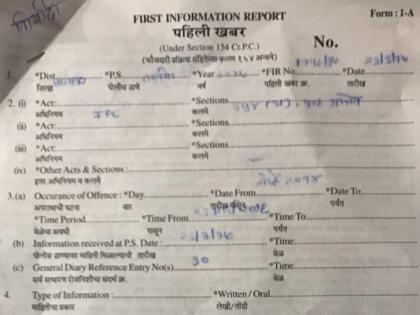 FIRST INFORMATION REPORT Form : 1-A
पहिली खबर
(Under Section 154 Cr.P.C.) No.
(फौजदारी प्रक्रिया संहितेच्या कलम १५४ अन्वये)
1. *Dist. *P.S. *Year *FIR No. *Date
जिल्हा पोलीस ठाणे वर्ष पहिली खबर क्र. तारीख
2. (i) *Act: IPC *Sections
अधिनियम कलमे
(ii) *Act: *Sections
अधिनियम कलमे
(iii) *Act: *Sections
अधिनियम कलमे
(iv) *Other Acts & Sections :
इतर अधिनियम व कलमे
3.(a) Occurance of Offence : *Day *Date From *Date To
अपराधाची घटना वार तारीख पासून पर्यंत
*Time Period *Time From *Time To
वेळेचा अवधी पासून पर्यंत
(b) Information received at P.S. Date : *Time
पोलीस ठाण्यावर माहिती मिळाल्याची तारीख वेळ
(c) General Diary Reference Entry No(s) 30 *Time
सर्व साधारण रोजनिशीचा संदर्भ क्र. वेळ
4. Type of Information : *Written / Oral
माहितीचा प्रकार लेखी/तोंडी